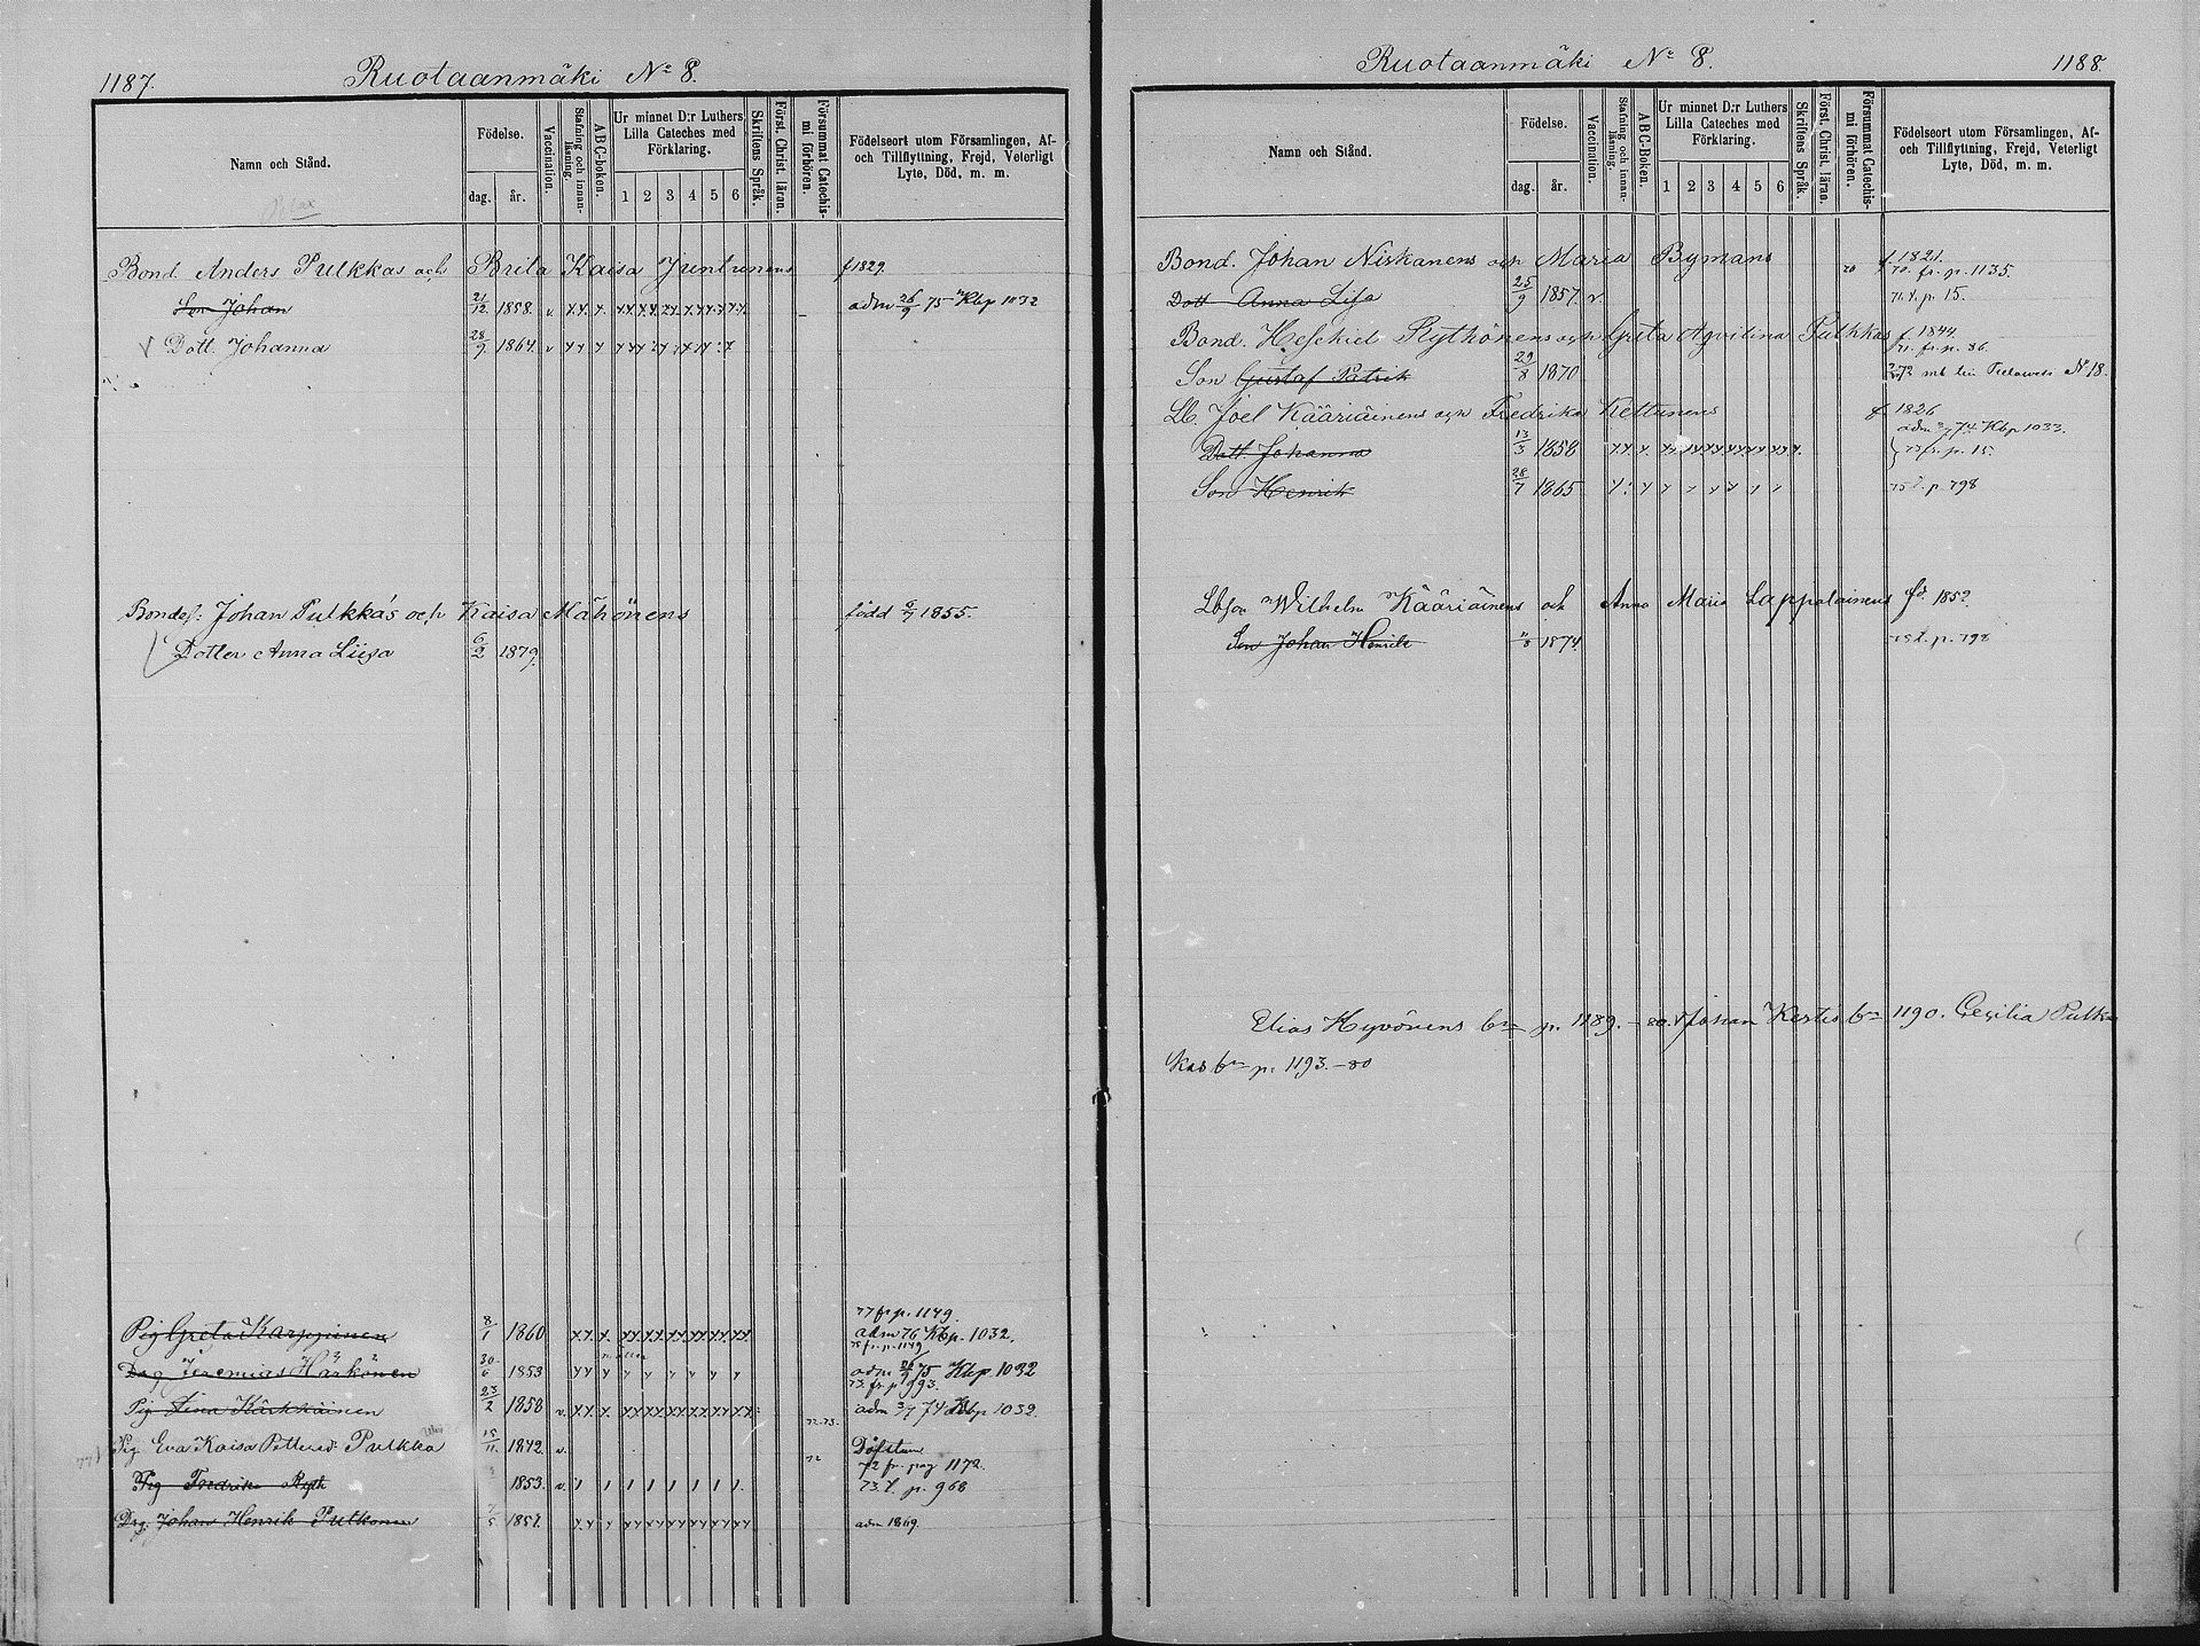 1187.
Ruotaanmäki No 8.
Namn och Stånd.
Födelse.
dag.
år.
Vaccination.
Stafning och innanläsning.
ABC-boken.
Ur minnet D:r Luthers Lilla Cateches med Förklaring.
1 2 3 4 5 6
Skriftens Språk.
Först. Christ. läran.
Försummat Catechismi förhören.
Födelseort utom Församlingen, Af- och Tillflyttning, Frejd, Veterligt Lyte, Död, m. m.
Bond. Anders Pulkkas och Brita Kaisa Juntunens f 1829.
Son Johan 21/12 1858. v. adm 26/9 75 Kbp 1032
Dott. Johanna 28/7 1864. v
Bondes: Johan Pulkka's och Kaisa Mähönens född 6/7 1855.
Dotter Anna Liisa 6/2 1879.
77 fr p. 1149.
Pig Greta Karppinen 8/1 1860 adm 76 Kbp. 1032.
75 fr. p. 1149
Drg Jeremias Härkönen 30/6 1853 adm 26/9 75 Kbp. 1032
73. fr. p 993.
Pig Lina Kärkkäinen 23/2 1858 v. adm 3/7 74 Kbp 1032.
72-73.
Pig Eva Kaisa Pettersd: Pulkka 15/11 1842. v. Döfstum
72
72 fr. pag 1172.
Pig Fredrika 1853. v. 73 t. p. 968
Drg. Johan Henrik Pulkonen 7/5 1851. adm 1869.
1188.
Ruotaanmäki No 8.
Namn och Stånd.
Födelse.
dag.
år.
Vaccination.
Stafning och innanläsning.
ABC-Boken.
Ur minnet D:r Luthers Lilla Cateches med Förklaring.
1 2 3 4 5 6
Skriftens Språk.
Först. Christ. läran.
Försummat Catechismi förhören.
Födelseort utom Församlingen, Af- och Tillflyttning, Frejd, Veterligt Lyte, Död, m. m.
Bond. Johan Niskanens och Maria Bymans f. 1821.
70 70. fr. p. 1135.
Dott Anna Lisa 25/9 1857. v. 71 t. p. 15.
Bond. Hesekiel Rythönens och Greta Aqvilina Pulkkas f. 1844.
71. fr. p. 86.
Son Gustaf Patrik 29/8 1870 No 18.
Lb. Joel Kääriäinens och Fredrika Kettunens f. 1826
adm 3/7 74 Kbp 1033.
Dott. Johanna 13/3 1858 73 fr. p. 15.
Son Henrik 28/7 1865 75 t. p. 798
Lbson Wilhelm Kääriäinens och Anna Maria Lappalainens fd. 1852.
Son Johan Henrik 1874. 75 t. p. 798
Elias Hyvönens bn p. 1189. - 80. Johan Kertis bn 1190. Cecilia Pulk
kas bn p. 1193. - 80